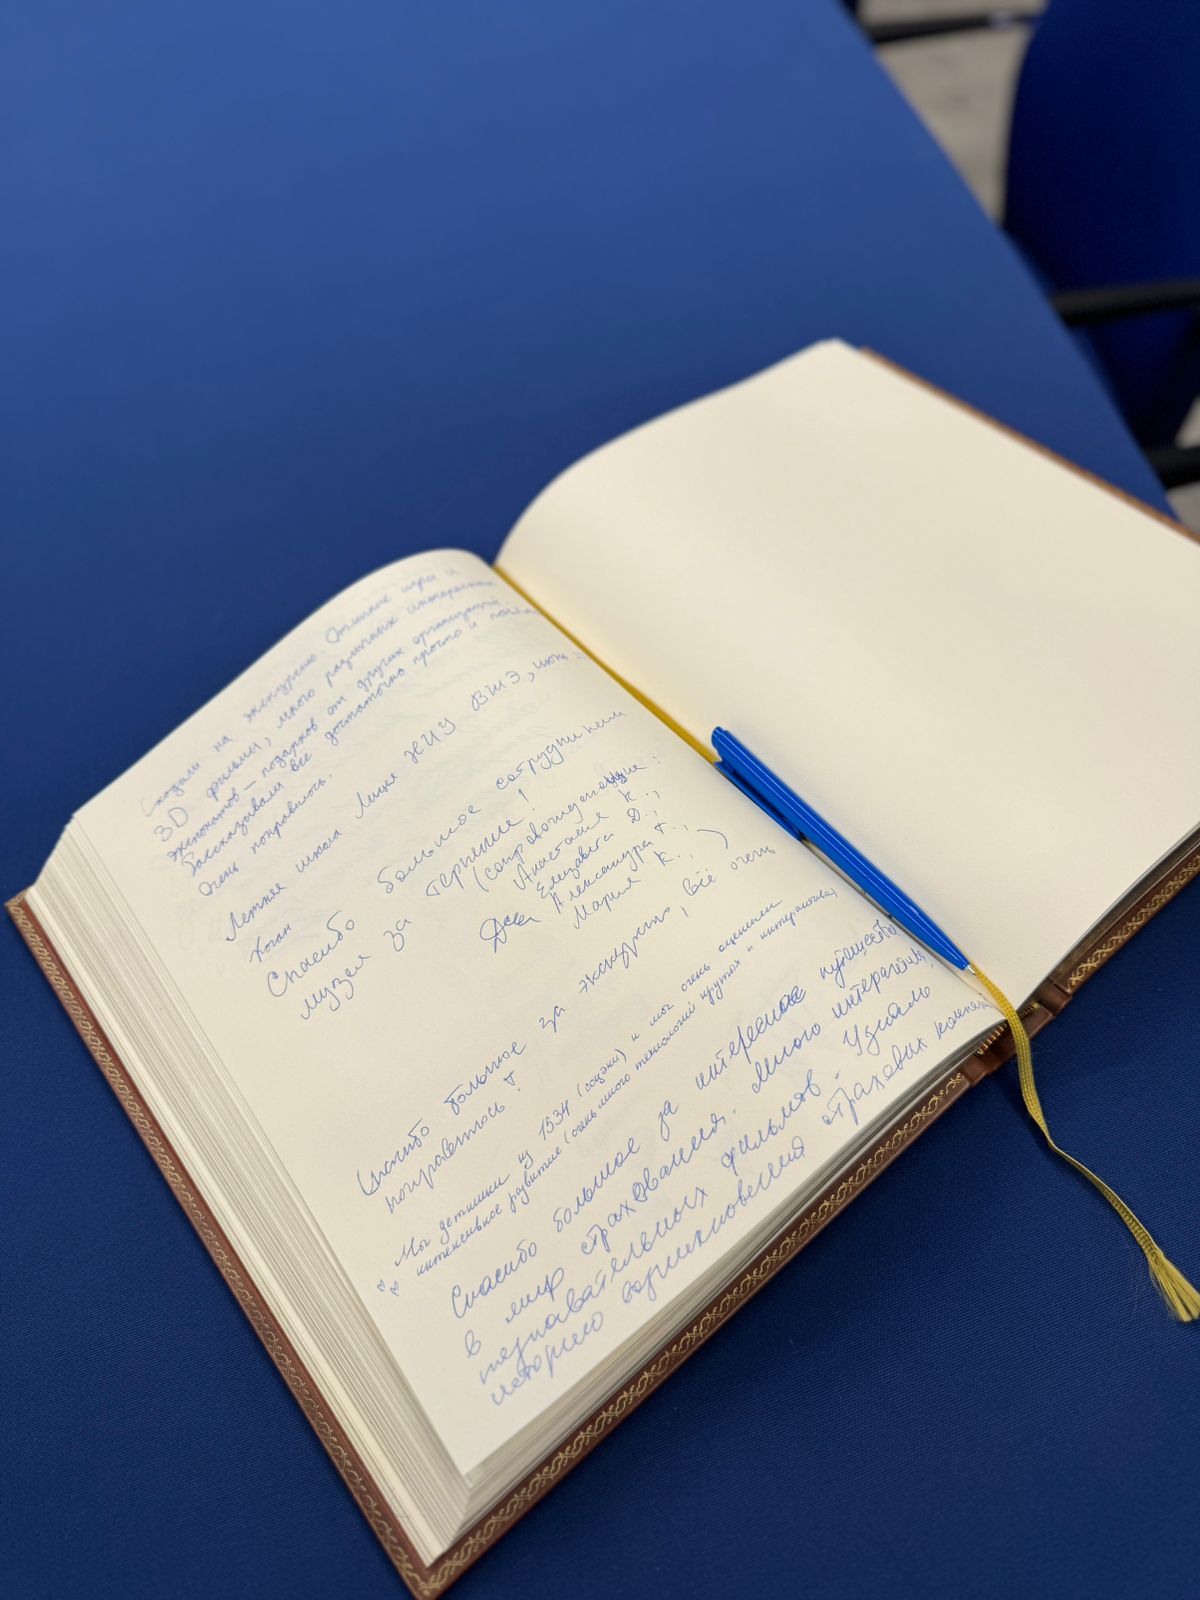 Сходили на экскурсию. Отличные игры и
3D фильмы, много различных интересных
экспонатов — подарков от других организаций.
Рассказывали всё достаточно просто и
Очень понравилось.
Летняя школа Лицея НИУ ВШЭ, июнь
Спасибо большое сотрудникам
музея за терпение!
(сопровождающие:
Анастасия К.,
Елизавета Д.,
Александра Г.,
Мария К.,)
Спасибо большое за экскурсию, всё очень
понравилось!
Мы детишки из 1534 (соцэки) и мы очень оценили
интенсивное развитие (очень много технологий крутых и интерактива)
Спасибо большое за интересное путешествие
в мир страхования. Много интерактива,
познавательных фильмов. Узнали
историю возникновения страховых